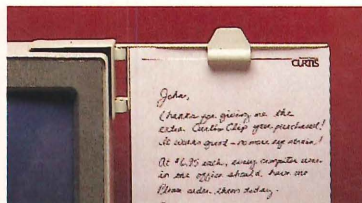 CURTIS
John,
Thanks for giving me the
extra Curtis Clip you purchased!
It works great - no more eye strain!
At $6.95 each, every computer user
in our office should have one
Please order them today.